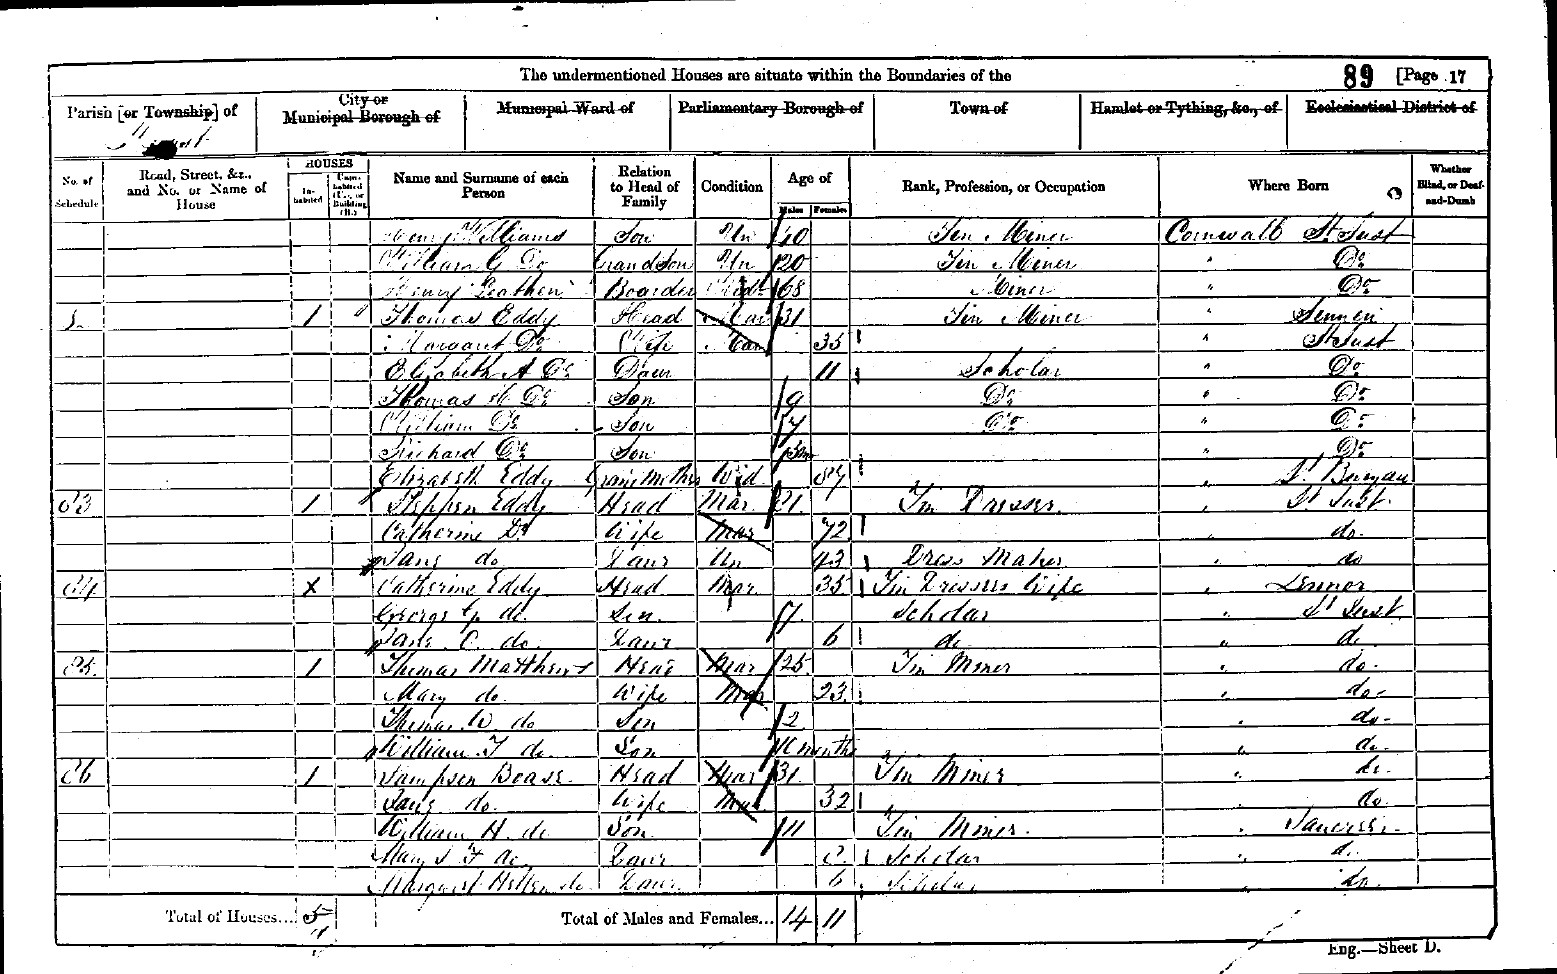 The undermentioned Houses are situate within the Boundaries of the 89 [Page 17
Parish [or Township] of City or Municipal Borough of Municipal Ward of Parliamentary Borough of Town of Hamlet or Tything, &c., of Ecclesiastical District of
No. of Schedule Road, Street, &c., and No. or Name of House HOUSES Inhabited Uninhabited (U.), or Building (B.) Name and Surname of each Person Relation to Head of Family Condition Age of Males Females Rank, Profession, or Occupation Where Born Whether Blind, or Deaf-and-Dumb
Henry Williams Son Un 40 Tin Miner Cornwall St Just
William G Do Grandson Un 20 Tin Miner " Do
Henry Boarder 68 Miner " Do
1 Thomas Eddy Head Mar 31 Tin Miner Sennen
Margaret Do Wife Mar 35 " St Just
Elizabeth A Do Daur 11 Scholar " Do
Thomas H Do Son 9 Do " Do
William Do Son 7 Do " Do
Richard Do Son " Do
Elizabeth Eddy Grandmother Wid 87 "
83 1 Stephen Eddy Head Mar. 71 Tin Dresser. " St Just.
Catherine Do Wife Mar 72 " do.
Jane do Daur Un 43 Dress Maker " do
84 X Catherine Eddy Head Mar. 35 Tin Dressers Wife "
George G. do. Son. 7. Scholar " St Just
Jane C. do. Daur 6 do " do
85. 1 Thomas Matthews Head Mar 25. Tin Miner " do.
Mary do. Wife Mar 23. " do-
Thomas W do Son 2 " do-
William T do. Son months " do.
86 1 Sampson Boase. Head Mar 31. Tin Miner " do.
Jane do. Wife Mar. 32 do.
William H. do Son. 11 Tin Miner. "
Mary do Daur Scholar " do.
Margaret Hellen do Daur. 6 Scholar " do.
Total of Houses... 5 Total of Males and Females... 14 11
Eng.—Sheet D.